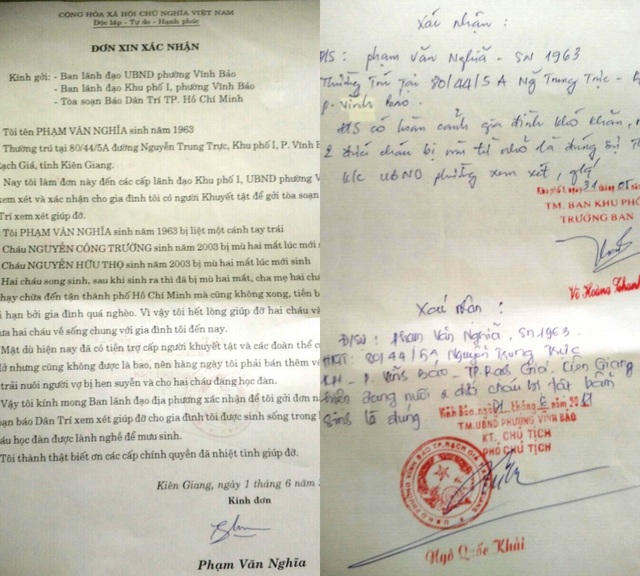 CỘNG HÒA XÃ HỘI CHỦ NGHĨA VIỆT NAM
Độc lập - Tự do - Hạnh phúc
ĐƠN XIN XÁC NHẬN
Kính gởi: - Ban lãnh đạo UBND phường Vĩnh Bảo
- Ban lãnh đạo Khu phố I, phường Vĩnh Bảo
- Tòa soạn Báo Dân Trí TP. Hồ Chí Minh
Tôi tên PHẠM VĂN NGHĨA sinh năm 1963
Thường trú tại 80/44/5A đường Nguyễn Trung Trực, Khu phố I, P. Vĩnh B
Rạch Giá, tỉnh Kiên Giang.
Nay tôi làm đơn này đến các cấp lãnh đạo Khu phố I, UBND phường V
xem xét và xác nhận cho gia đình tôi có người Khuyết tật để gởi tòa soạn
Trí xem xét giúp đỡ.
Tôi PHẠM VĂN NGHĨA sinh năm 1963 bị liệt một cánh tay trái
Cháu NGUYỄN CÔNG TRƯỞNG sinh năm 2003 bị mù hai mắt lúc mới s
Cháu NGUYỄN HỮU THỌ sinh năm 2003 bị mù hai mắt lúc mới sinh
Hai cháu song sinh, sau khi sinh ra thì đã bị mù hai mắt, cha mẹ hai chá
chạy chữa đến tận thành phố Hồ Chí Minh mà cũng không xong, tiền b
ì hạn bởi gia đình quá nghèo. Vì vậy tôi hết lòng giúp đỡ hai cháu và
ưa hai cháu về sống chung với gia đình tôi đến nay.
Mặt dù hiện nay đã có tiền trợ cấp người khuyết tật và các đoàn thể c
đỡ nhưng cũng không được là bao, nên hàng ngày tôi phải bán thêm v
trải nuôi người vợ bị hen suyễn và cho hai cháu đang học đàn.
Vậy tôi kính mong Ban lãnh đạo địa phương xác nhận để tôi gởi đơn n
soạn báo Dân Trí xem xét giúp đỡ cho gia đình tôi được sinh sống trong l
cháu học đàn được lành nghề để mưu sinh.
Tôi thành thật biết ơn các cấp chính quyền đã nhiệt tình giúp đỡ.
Kiên Giang, ngày 1 tháng 6 năm
Kính đơn
Phạm Văn Nghĩa
Xác nhận :
Đ/S : phạm Văn Nghĩa - SN 1963
Thường Trú Tại 80/44/5A Ng Trung Trực -
P. Vĩnh Bảo.
Đ/S có hoàn cảnh gia đình khó khăn,
2 đứa cháu bị mù từ nhỏ là đúng sự
K/c UBND phường xem xét,
31 05
TM. BAN KHU PHỐ
TRƯỞNG BAN
Võ Hoàng Khanh
Xác nhận :
Phạm Văn Nghĩa, SN 1963.
HKTT: 80/44/5A Nguyễn Trung Trực
P. Vĩnh Bảo - TP. Rạch Giá. Kiên Giang
hiện đang nuôi 2 đứa cháu bị tật bẩm
sinh là đúng
Vĩnh Bảo, ngày 01 tháng 6 năm
TM. UBND PHƯỜNG VĨNH BẢO
KT. CHỦ TỊCH
PHÓ CHỦ TỊCH
Ngô Quốc Khải